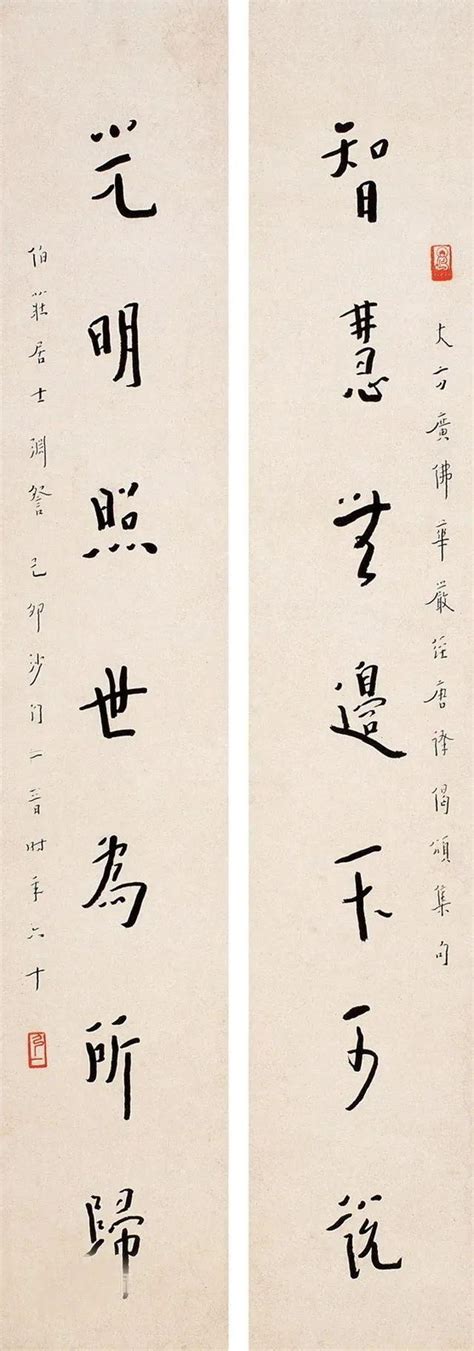 大方廣佛華嚴經唐譯偈頌集句
智慧無邊不可說
光明照世為所歸
伯莊居士淵詧 己卯沙門一音時年六十